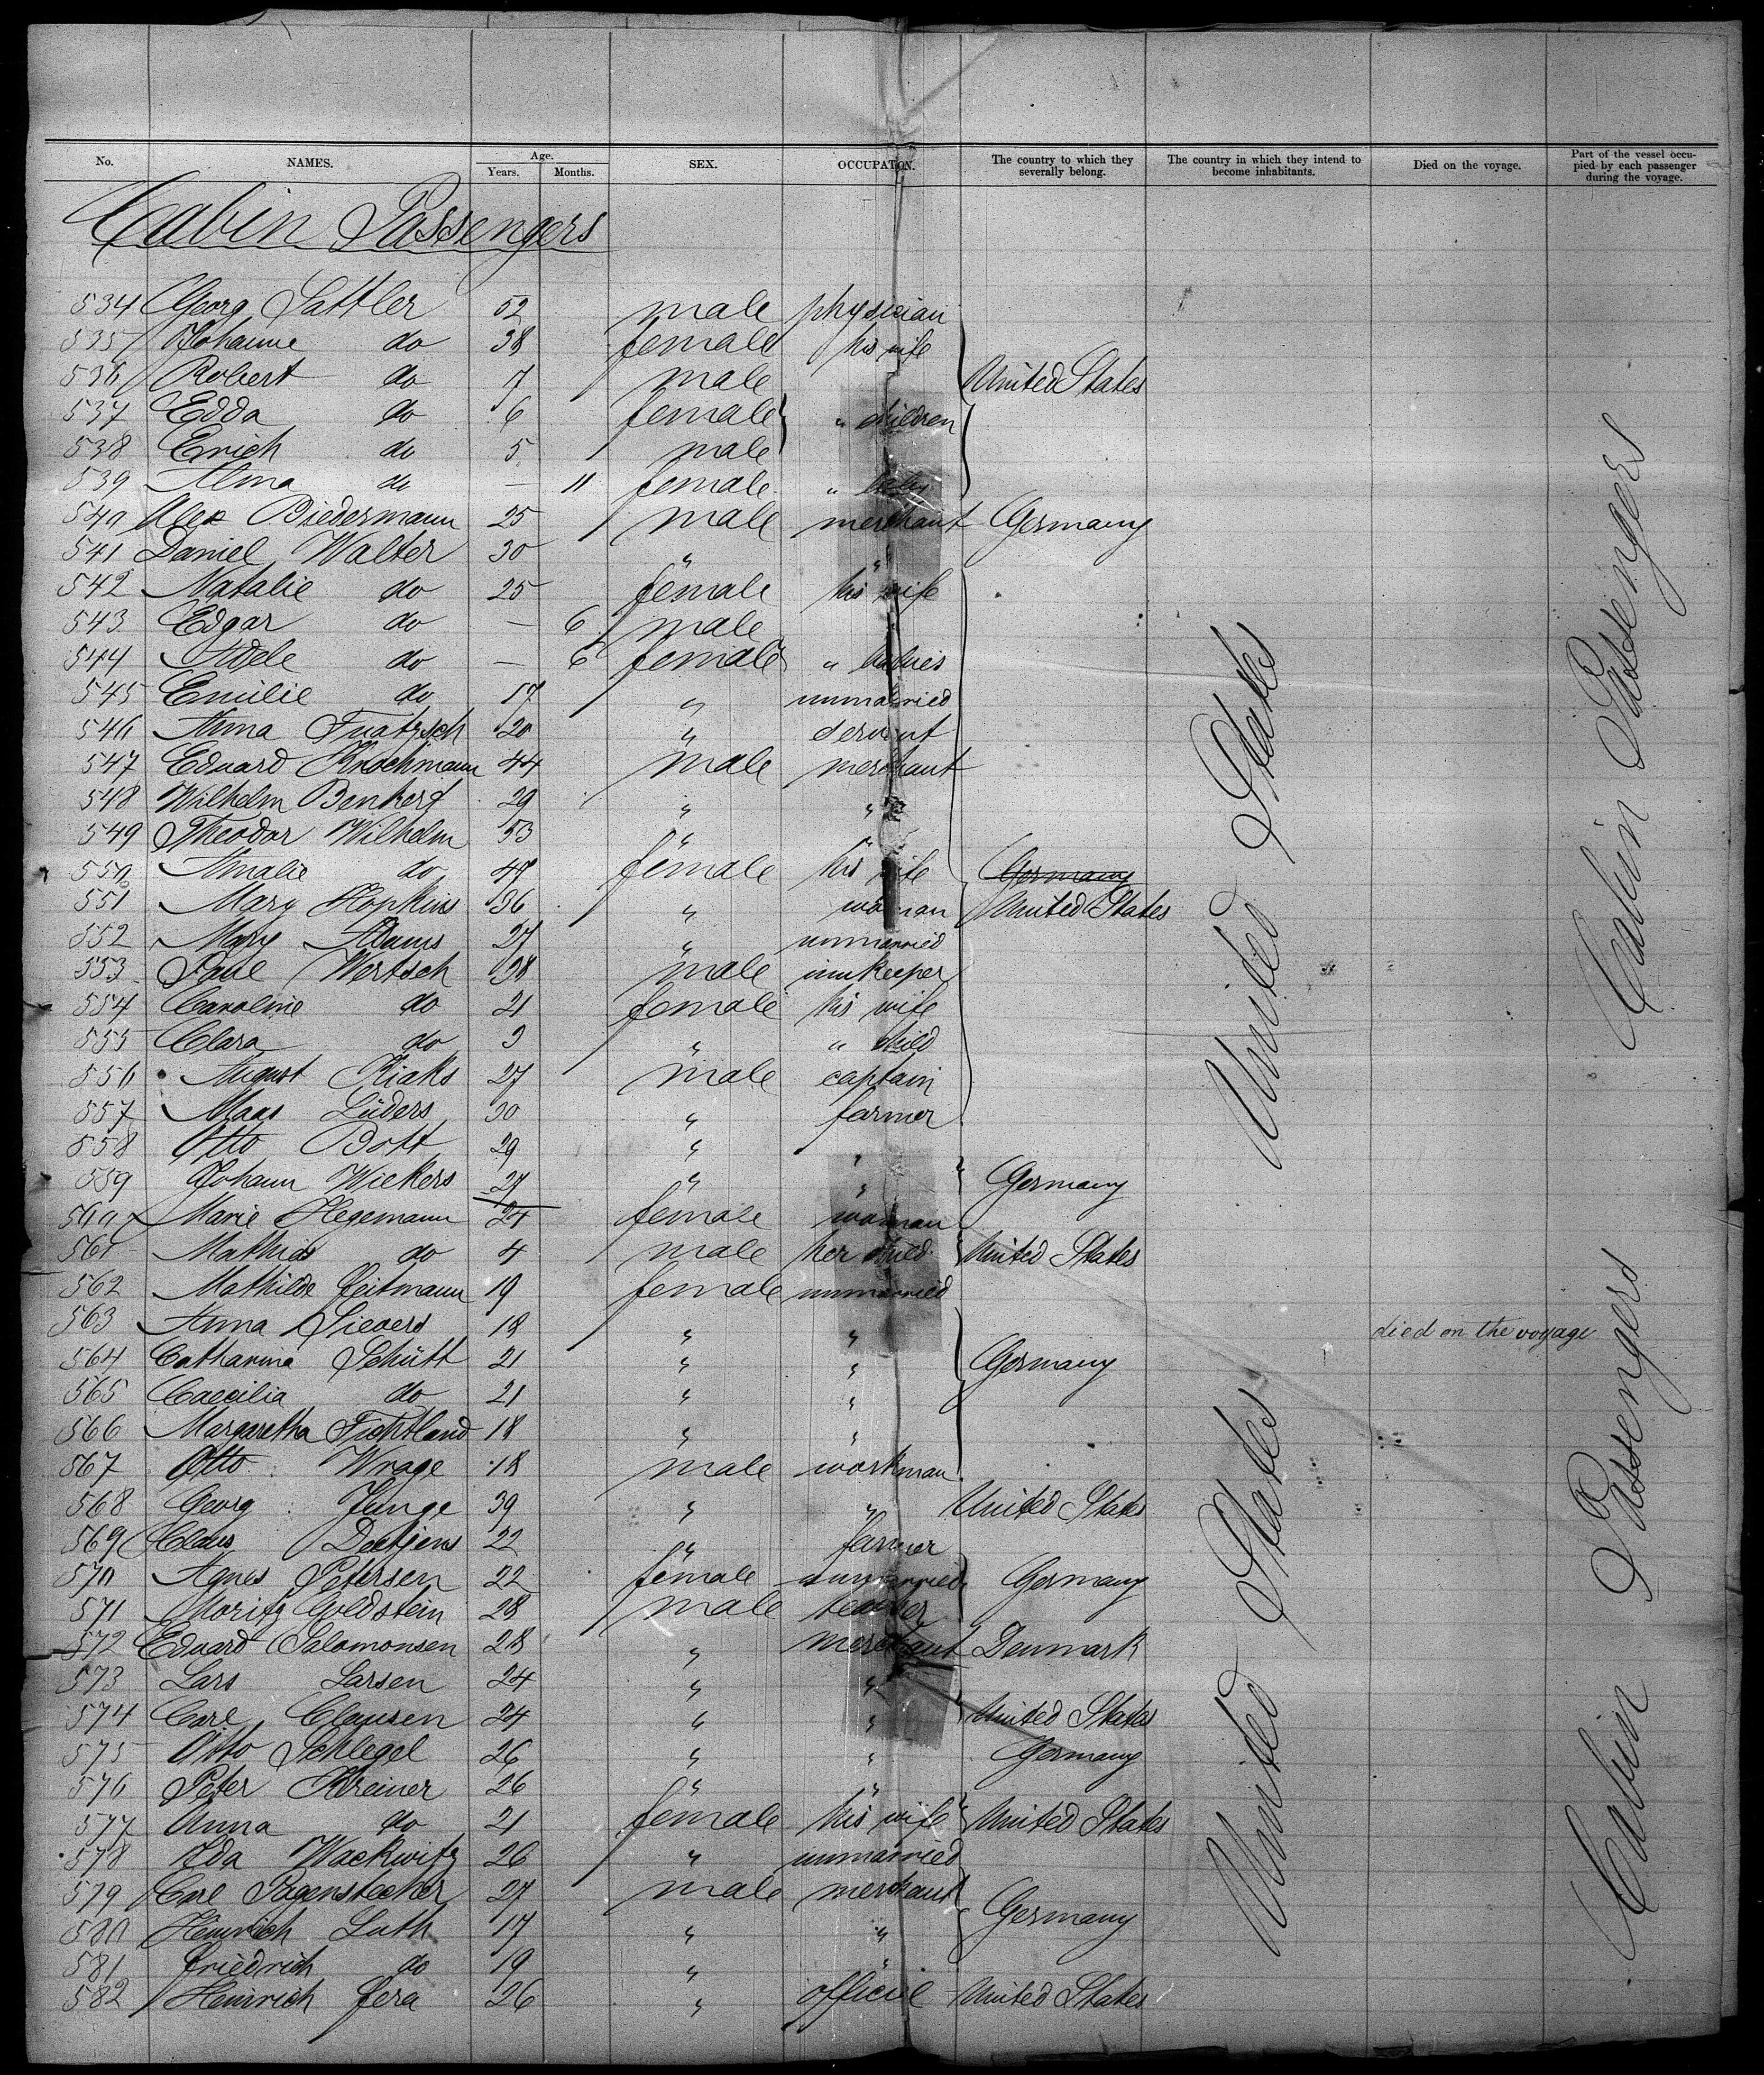 No. NAMES. Age. Years. Months. SEX. OCCUPATION. The country to which they severally belong. The country in which they intend to become inhabitants. Died on the voyage. Part of the vessel occupied by each passenger during the voyage.
Cabin Passengers
534 Georg Sattler 52 male physician
535 Johanne do 38 female his wife
536 Robert do 7 male United States
537 Edda do 6 female " children
538 Erich do 5 male
539 Alma do — 11 female " baby
540 Alex Biedermann 25 male merchant Germany
541 Daniel Walter 30 " "
542 Natalie do 25 female his wife
543 Edgar do — 6 male
544 Adele do — 6 female " babies
545 Emilie do 17 " unmarried
546 Anna 20 " servant
547 Eduard Knochmann 44 male merchant
548 Wilhelm Benkert 29 " "
549 Theodor Wilhelm 53 " "
550 Amalie do 47 female his wife Germany
551 Mary Hopkins 36 " woman United States
552 Mary Adams 27 " unmarried
553 Paul Wertsch 28 male innkeeper
554 Caroline do 21 female his wife
555 Clara do 3 " " child
556 August Kiaks 27 male captain
557 Maas Lüders 30 " farmer
558 Otto Bott 29 " "
559 Johann Wiekers 27 " " Germany
560 Marie Hegemann 24 female woman
561 Mathias do 4 male her child United States
562 Mathilde Feitmann 19 female unmarried
563 Anna Sievers 18 " " died on the voyage
564 Catharina Schütt 21 " " Germany
565 Caecilia do 21 " "
566 Margaretha Fichtland 18 " "
567 Otto Wrage 18 male workman
568 Georg Junge 39 " " United States
569 Claus Detjens 22 " farmer
570 Agnes Petersen 22 female unmarried Germany
571 Moritz Goldstein 28 male teacher
572 Eduard Salomonsen 28 " merchant Denmark
573 Lars Larsen 24 " "
574 Carl Clausen 24 " " United States
575 Otto Schlegel 26 " " Germany
576 Peter Kreiner 26 " "
577 Anna do 21 female his wife United States
578 Ida Wackwitz 26 " unmarried
579 Carl Pagenstecher 27 male merchant
580 Heinrich Luth 17 " " Germany
581 Friedrich do 19 " "
582 Heinrich Fera 26 " official United States
United States
United States
Cabin Passengers
Cabin Passengers